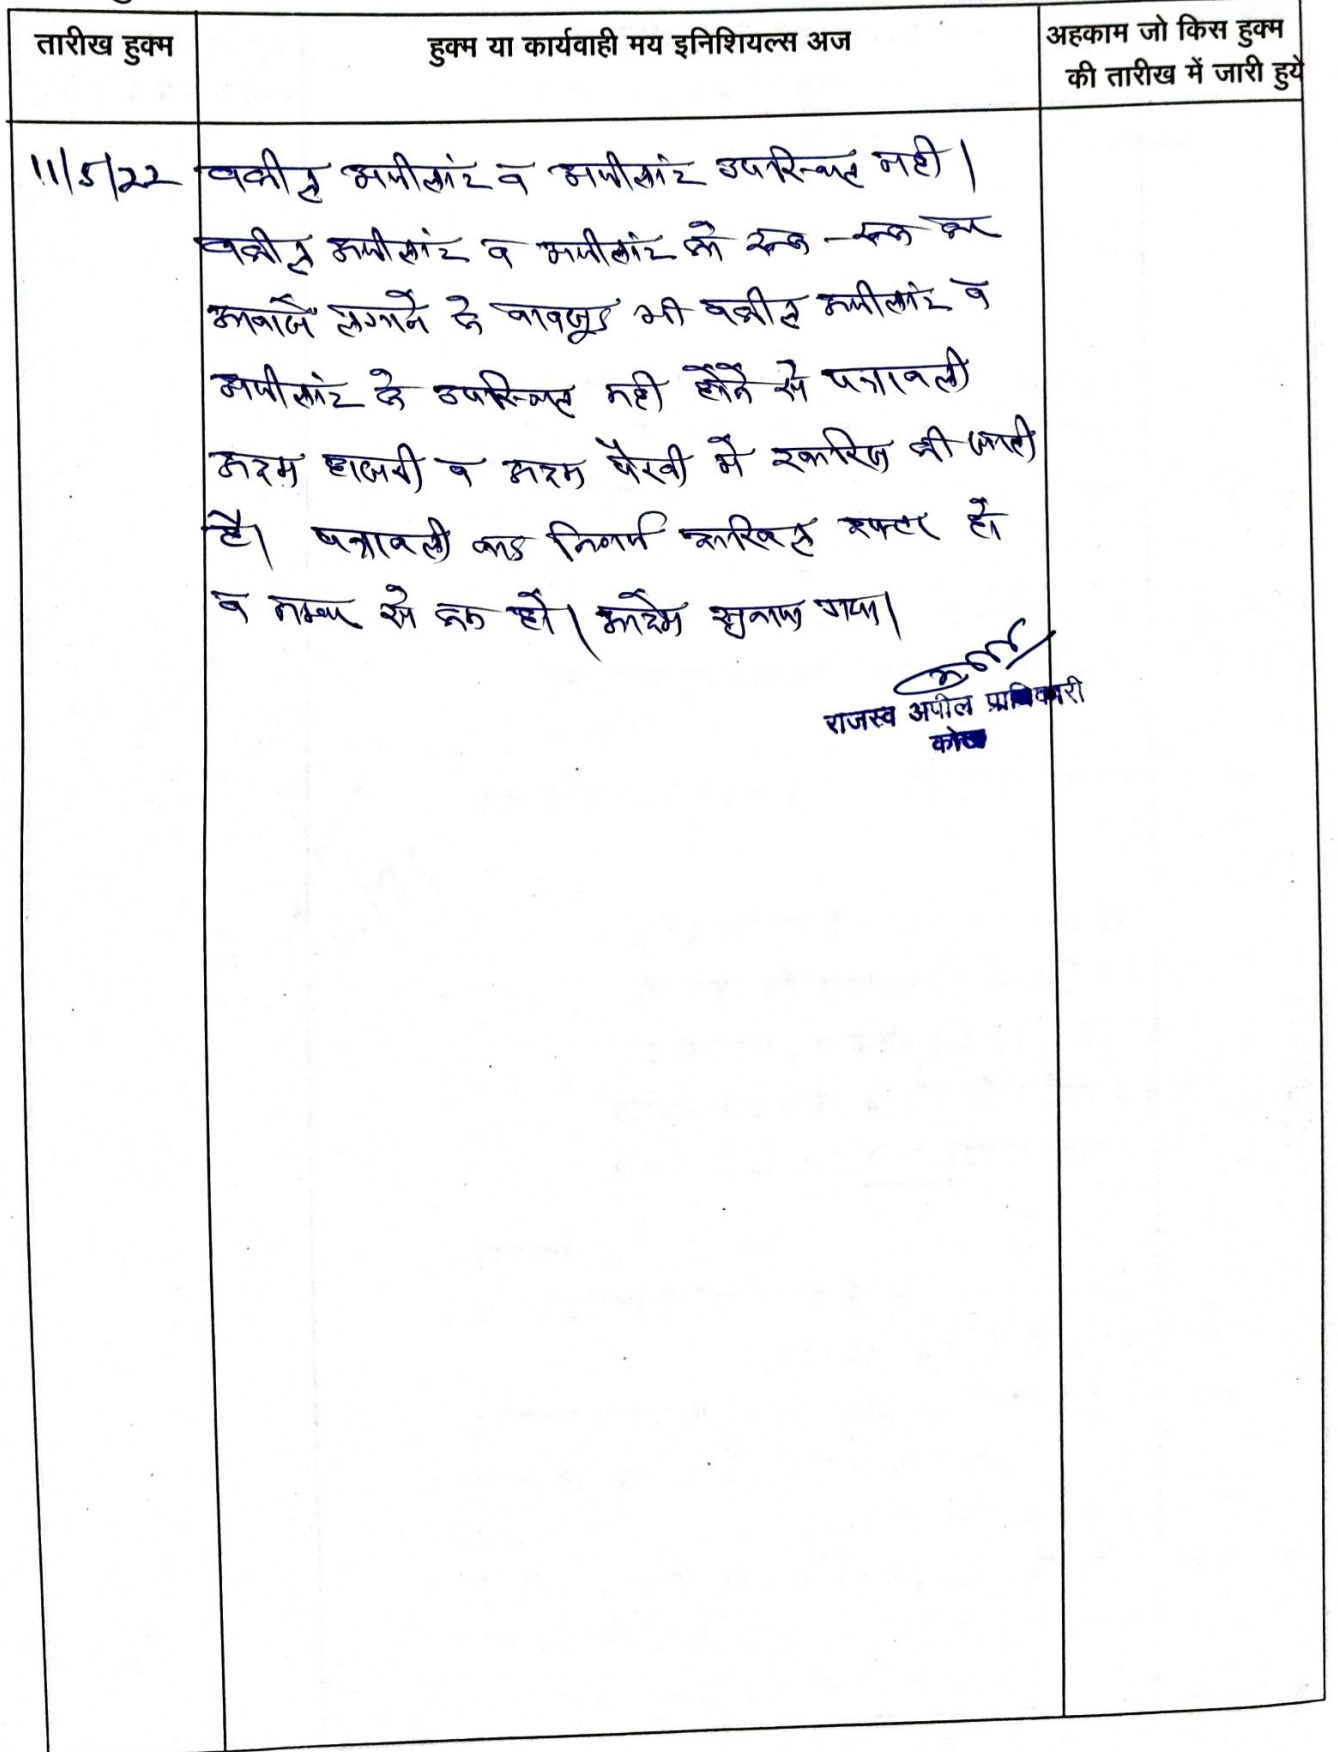 तारीख हुक्म
हुक्म या कार्यवाही मय इनिशियल्स अज
अहकाम जो किस हुक्म
की तारीख में जारी हुये
11/5/22 वकील अपीलांट व अपीलांट उपस्थित नही।
वकील अपीलांट व अपीलांट को रूक-रूक कर
आवाजें लगाने के बावजूद भी वकील अपीलांट व
अपीलांट के उपस्थित नही होने से पत्रावली
अदम हाजरी व अदम पैरवी में खारिज की जाती
है। पत्रावली बाद निर्णय दाखिल दफ्तर हो
व नम्बर से कम हो। आदेश सुनाया गया।
राजस्व अपील प्राधिकारी